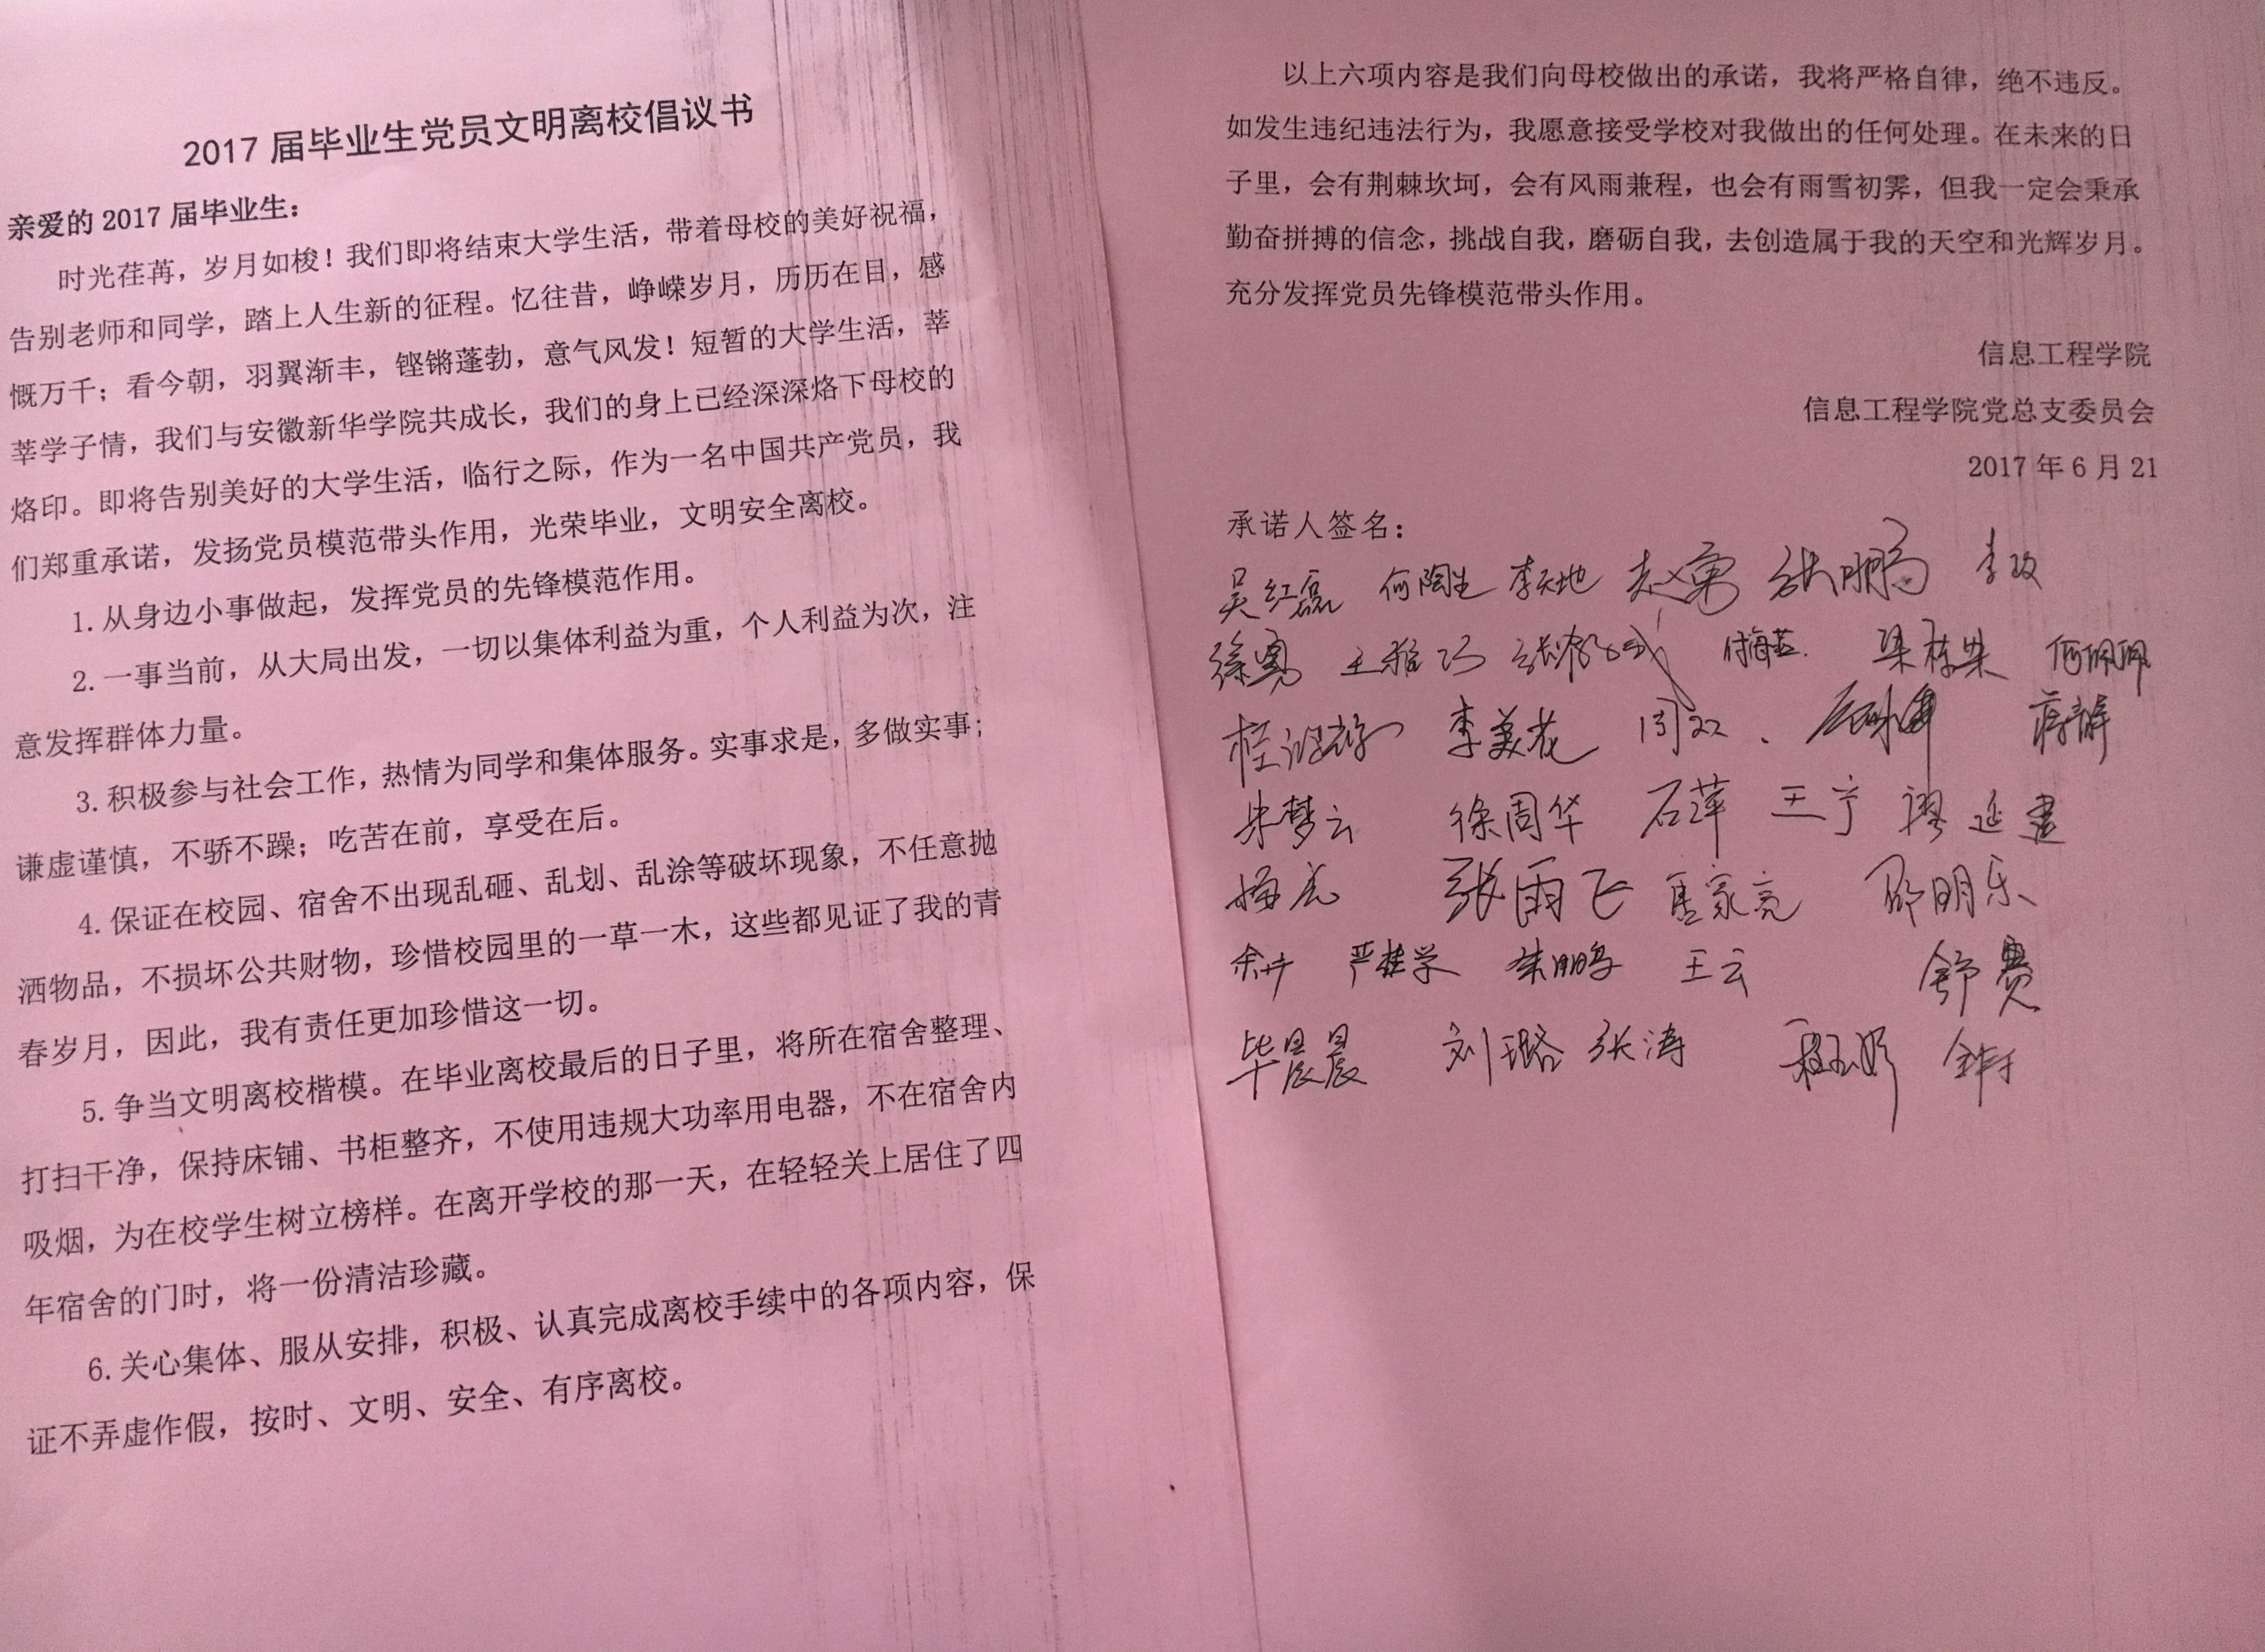 2017 届毕业生党员文明离校倡议书
亲爱的 2017 届毕业生：
时光荏苒，岁月如梭！我们即将结束大学生活，带着母校的美好祝福，
告别老师和同学，踏上人生新的征程。忆往昔，峥嵘岁月，历历在目，感
慨万千；看今朝，羽翼渐丰，铿锵蓬勃，意气风发！短暂的大学生活，莘
莘学子情，我们与安徽新华学院共成长，我们的身上已经深深烙下母校的
烙印。即将告别美好的大学生活，临行之际，作为一名中国共产党员，我
们郑重承诺，发扬党员模范带头作用，光荣毕业，文明安全离校。
1. 从身边小事做起，发挥党员的先锋模范作用。
2. 一事当前，从大局出发，一切以集体利益为重，个人利益为次，注
意发挥群体力量。
3. 积极参与社会工作，热情为同学和集体服务。实事求是，多做实事；
谦虚谨慎，不骄不躁；吃苦在前，享受在后。
4. 保证在校园、宿舍不出现乱砸、乱划、乱涂等破坏现象，不任意抛
洒物品，不损坏公共财物，珍惜校园里的一草一木，这些都见证了我的青
春岁月，因此，我有责任更加珍惜这一切。
5. 争当文明离校楷模。在毕业离校最后的日子里，将所在宿舍整理、
打扫干净，保持床铺、书柜整齐，不使用违规大功率用电器，不在宿舍内
吸烟，为在校学生树立榜样。在离开学校的那一天，在轻轻关上居住了四
年宿舍的门时，将一份清洁珍藏。
6. 关心集体、服从安排，积极、认真完成离校手续中的各项内容，保
证不弄虚作假，按时、文明、安全、有序离校。
以上六项内容是我们向母校做出的承诺，我将严格自律，绝不违反。
如发生违纪违法行为，我愿意接受学校对我做出的任何处理。在未来的日
子里，会有荆棘坎坷，会有风雨兼程，也会有雨雪初霁，但我一定会秉承
勤奋拼搏的信念，挑战自我，磨砺自我，去创造属于我的天空和光辉岁月。
充分发挥党员先锋模范带头作用。
信息工程学院
信息工程学院党总支委员会
2017 年 6 月 21
承诺人签名：
吴红磊 何陶生 李天地 赵勇 张鹏 李政
徐勇 王雅巧 何佩佩
李美花 周双
朱梦云 徐周华 石萍 王宁
梅虎 张雨飞 邵明乐
严桂学 朱鹏 王云 舒赛
毕晨晨 刘璐 张涛